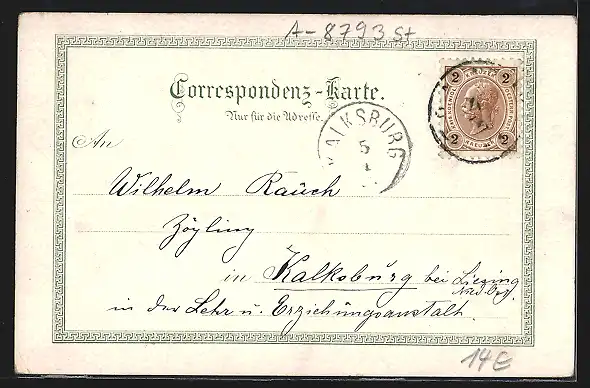 A-8793 St
Correspondenz-Karte.
Nur für die Adresse.
KALKSBURG
5
1
2
2
2
2
KREUZER
An
Wilhelm Rauch
Zögling
in Kalksburg bei Liesing
in der Lehr u. Erziehungsanstalt.
14E